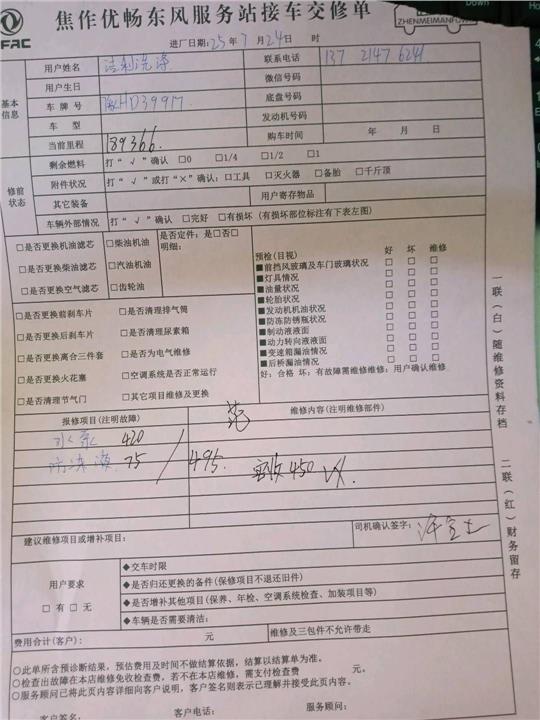 FAC
焦作优畅东风服务站接车交修单
ZHENMEIMANFU
进厂日期:25年7月24日 时
基本信息
用户姓名 洁利洗涤 联系电话 137 2147 6241
用户生日 微信号码
车牌号 HD3991 底盘号码
车型 发动机号码
当前里程 189366. 购车时间 年 月 日
修前状态
剩余燃料 打“√”确认 □0 □1/4 □1/2 □1
附件状况 打“√”或打“×”确认:□工具 □灭火器 □备胎 □千斤顶
其它装备 用户寄存物品
车辆外部情况 打“√”确认 □完好 □有损坏 (有损坏部位标注有下表左图)
□是否更换机油滤芯 □柴油机油 是否定件:是□否□
明细:
□是否更换柴油滤芯 □汽油机油
□是否更换空气滤芯 □齿轮油
预检(目视) 好 坏 维修
■前挡风玻璃及车门玻璃状况 □ □ □
■灯具情况 □ □ □
■油量状况 □ □ □
■轮胎状况 □ □ □
■发动机机油状况 □ □ □
■防冻防锈瓶状况 □ □ □
■制动液液面 □ □ □
■动力转向液液面 □ □ □
■变速箱漏油情况 □ □ □
■后桥漏油情况 □ □ □
好:合格 坏:有故障需维修维修:用户确认维修
□是否更换前刹车片 □是否清理排气筒
□是否更换后刹车片 □是否清理尿素箱
□是否更换离合三件套 □是否为电气维修
□是否更换火花塞 □空调系统是否正常运行
□是否清理节气门 □其它项目维修及更换
报修项目(注明故障) 维修内容(注明维修部件)
水泵 420
防冻液 75 495. 实收450
建议维修项目或增补项目: 司机确认签字:
用户要求
□有 □无
◆交车时限
◆是否归还更换的备件(保修项目不退还旧件)
◆是否增补其他项目(保养、年检、空调系统检查、加装项目等)
◆车辆是否需要清洁:
费用合计(客户): 元 维修及三包件不允许带走
○此单所含预诊断结果,预估费用及时间不做结算依据,结算以结算单为准。
○检查出故障在本店维修免收检查费,若不在本店维修,需支付检查费 元。
○服务顾问已将此页内容详细向客户说明,客户签名则表示已理解并接受此页内容。
客户签名: 客户电话: 服务顾问:
一联(白)随维修资料存档 二联(红)财务留存